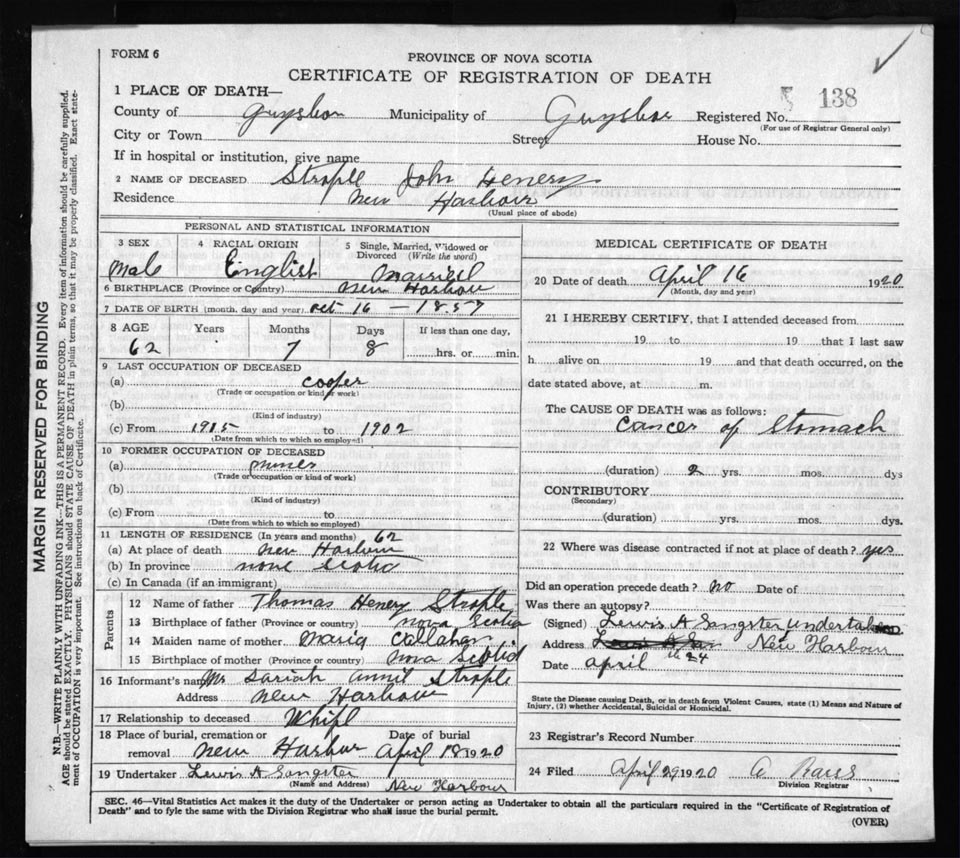 FORM 6
PROVINCE OF NOVA SCOTIA
CERTIFICATE OF REGISTRATION OF DEATH
1 PLACE OF DEATH—
County of Guysbor Municipality of Guysbor Registered No. 138
(For use of Registrar General only)
City or Town Street House No.
If in hospital or institution, give name
2 NAME OF DECEASED Strople John Henery
Residence New Harbour
(Usual place of abode)
PERSONAL AND STATISTICAL INFORMATION
3 SEX 4 RACIAL ORIGIN 5 Single, Married, Widowed or Divorced (Write the word)
Male English Married
6 BIRTHPLACE (Province or Country) New Harbour
7 DATE OF BIRTH (month, day and year) Oct 16 — 1857
8 AGE Years Months Days If less than one day,
62 7 8 hrs. or min.
9 LAST OCCUPATION OF DECEASED
(a) Cooper
(Trade or occupation or kind of work)
(b)
(Kind of industry)
(c) From 1915 to 1902
(Date from which to which so employed)
10 FORMER OCCUPATION OF DECEASED
(a) miner
(Trade or occupation or kind of work)
(b)
(Kind of industry)
(c) From to
(Date from which to which so employed)
11 LENGTH OF RESIDENCE (In years and months) 62
(a) At place of death New Harbour
(b) In province nove Scotia
(c) In Canada (if an immigrant)
Parents
12 Name of father Thomas Henery Strople
13 Birthplace of father (Province or country) Nova Scotia
14 Maiden name of mother Maria Callahan
15 Birthplace of mother (Province or country) Nova Scotia
16 Informant's name Mr Sariah Annil Strople
Address New Harbour
17 Relationship to deceased Whife
18 Place of burial, cremation or removal New Harbur Date of burial April 18 1920
19 Undertaker Lewis A Sangster
(Name and Address) New Harbour
MEDICAL CERTIFICATE OF DEATH
20 Date of death April 16 1920
(Month, day and year)
21 I HEREBY CERTIFY, that I attended deceased from
19 to 19 that I last saw
h alive on 19 and that death occurred, on the
date stated above, at m.
The CAUSE OF DEATH was as follows:
Cancer of Stomach
(duration) 2 yrs. mos. dys
CONTRIBUTORY
(Secondary)
(duration) yrs. mos. dys.
22 Where was disease contracted if not at place of death? yes
Did an operation precede death? No Date of
Was there an autopsy?
(Signed) Lewis A Sangster Undertaker
Address New Harbour
Date April 24
State the Disease causing Death, or in death from Violent Causes, state (1) Means and Nature of
Injury, (2) whether Accidental, Suicidal or Homicidal.
23 Registrar's Record Number
24 Filed April 29 1920 A
Division Registrar
SEC. 46—Vital Statistics Act makes it the duty of the Undertaker or person acting as Undertaker to obtain all the particulars required in the "Certificate of Registration of
Death" and to fyle the same with the Division Registrar who shall issue the burial permit.
(OVER)
MARGIN RESERVED FOR BINDING
N.B.—WRITE PLAINLY WITH UNFADING INK—THIS IS A PERMANENT RECORD. Every item of information should be carefully supplied.
AGE should be stated EXACTLY. PHYSICIANS should STATE CAUSE OF DEATH in plain terms, so that it may be properly classified. Exact state-
ment of OCCUPATION is very important. See instructions on back of Certificate.